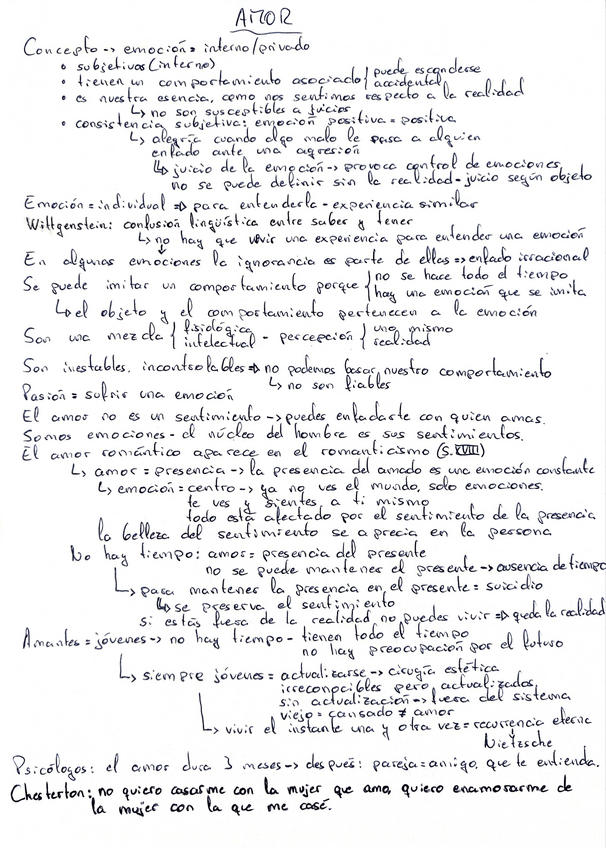 AMOR
Concepto -> emoción = interno/privado
• subjetivos (interno)
• tienen un comportamiento asociado { puede esconderse
accidental
• es nuestra esencia, como nos sentimos respecto a la realidad
↳ no son susceptibles a juicios
• consistencia subjetiva: emoción positiva = positiva
↳ alegría cuando algo malo le pasa a alguien
enfado ante una agresión
↳ juicio de la emoción -> provoca control de emociones
no se puede definir sin la realidad - juicio según objeto
Emoción = individual => para entenderla - experiencia similar
Wittgenstein: confusión lingüística entre saber y tener
↳ no hay que vivir una experiencia para entender una emoción
En algunas emociones la ignorancia es parte de ellas => enfado irracional
Se puede imitar un comportamiento porque { no se hace todo el tiempo
hay una emoción que se imita
↳ el objeto y el comportamiento pertenecen a la emoción
Son una mezcla { fisiológica - percepción { uno mismo
intelectual realidad
Son inestables, incontrolables => no podemos basar nuestro comportamiento
↳ no son fiables
Pasión = sufrir una emoción
El amor no es un sentimiento -> puedes enfadarte con quien amas.
Somos emociones - el núcleo del hombre es sus sentimientos.
El amor romántico aparece en el romanticismo (S. XVIII)
↳ amor = presencia -> la presencia del amado es una emoción constante
↳ emoción = centro -> ya no ves el mundo, solo emociones.
te ves y sientes a ti mismo
todo está afectado por el sentimiento de la presencia
la belleza del sentimiento se aprecia en la persona
No hay tiempo: amor = presencia del presente
no se puede mantener el presente -> ausencia de tiempo
↳ para mantener la presencia en el presente = suicidio
↳ se preserva el sentimiento
si estás fuera de la realidad no puedes vivir => queda la realidad
Amantes = jóvenes -> no hay tiempo - tienen todo el tiempo
no hay preocupación por el futuro
↳ siempre jóvenes = actualizarse -> cirugía estética
irreconocibles pero actualizados
sin actualización -> fuera del sistema
viejo = cansado ≠ amor
↳ vivir el instante una y otra vez = recurrencia eterna
Nietzsche
Psicólogos: el amor dura 3 meses -> después: pareja = amigo, que te entienda.
Chesterton: no quiero casarme con la mujer que amo, quiero enamorarme de
la mujer con la que me casé.